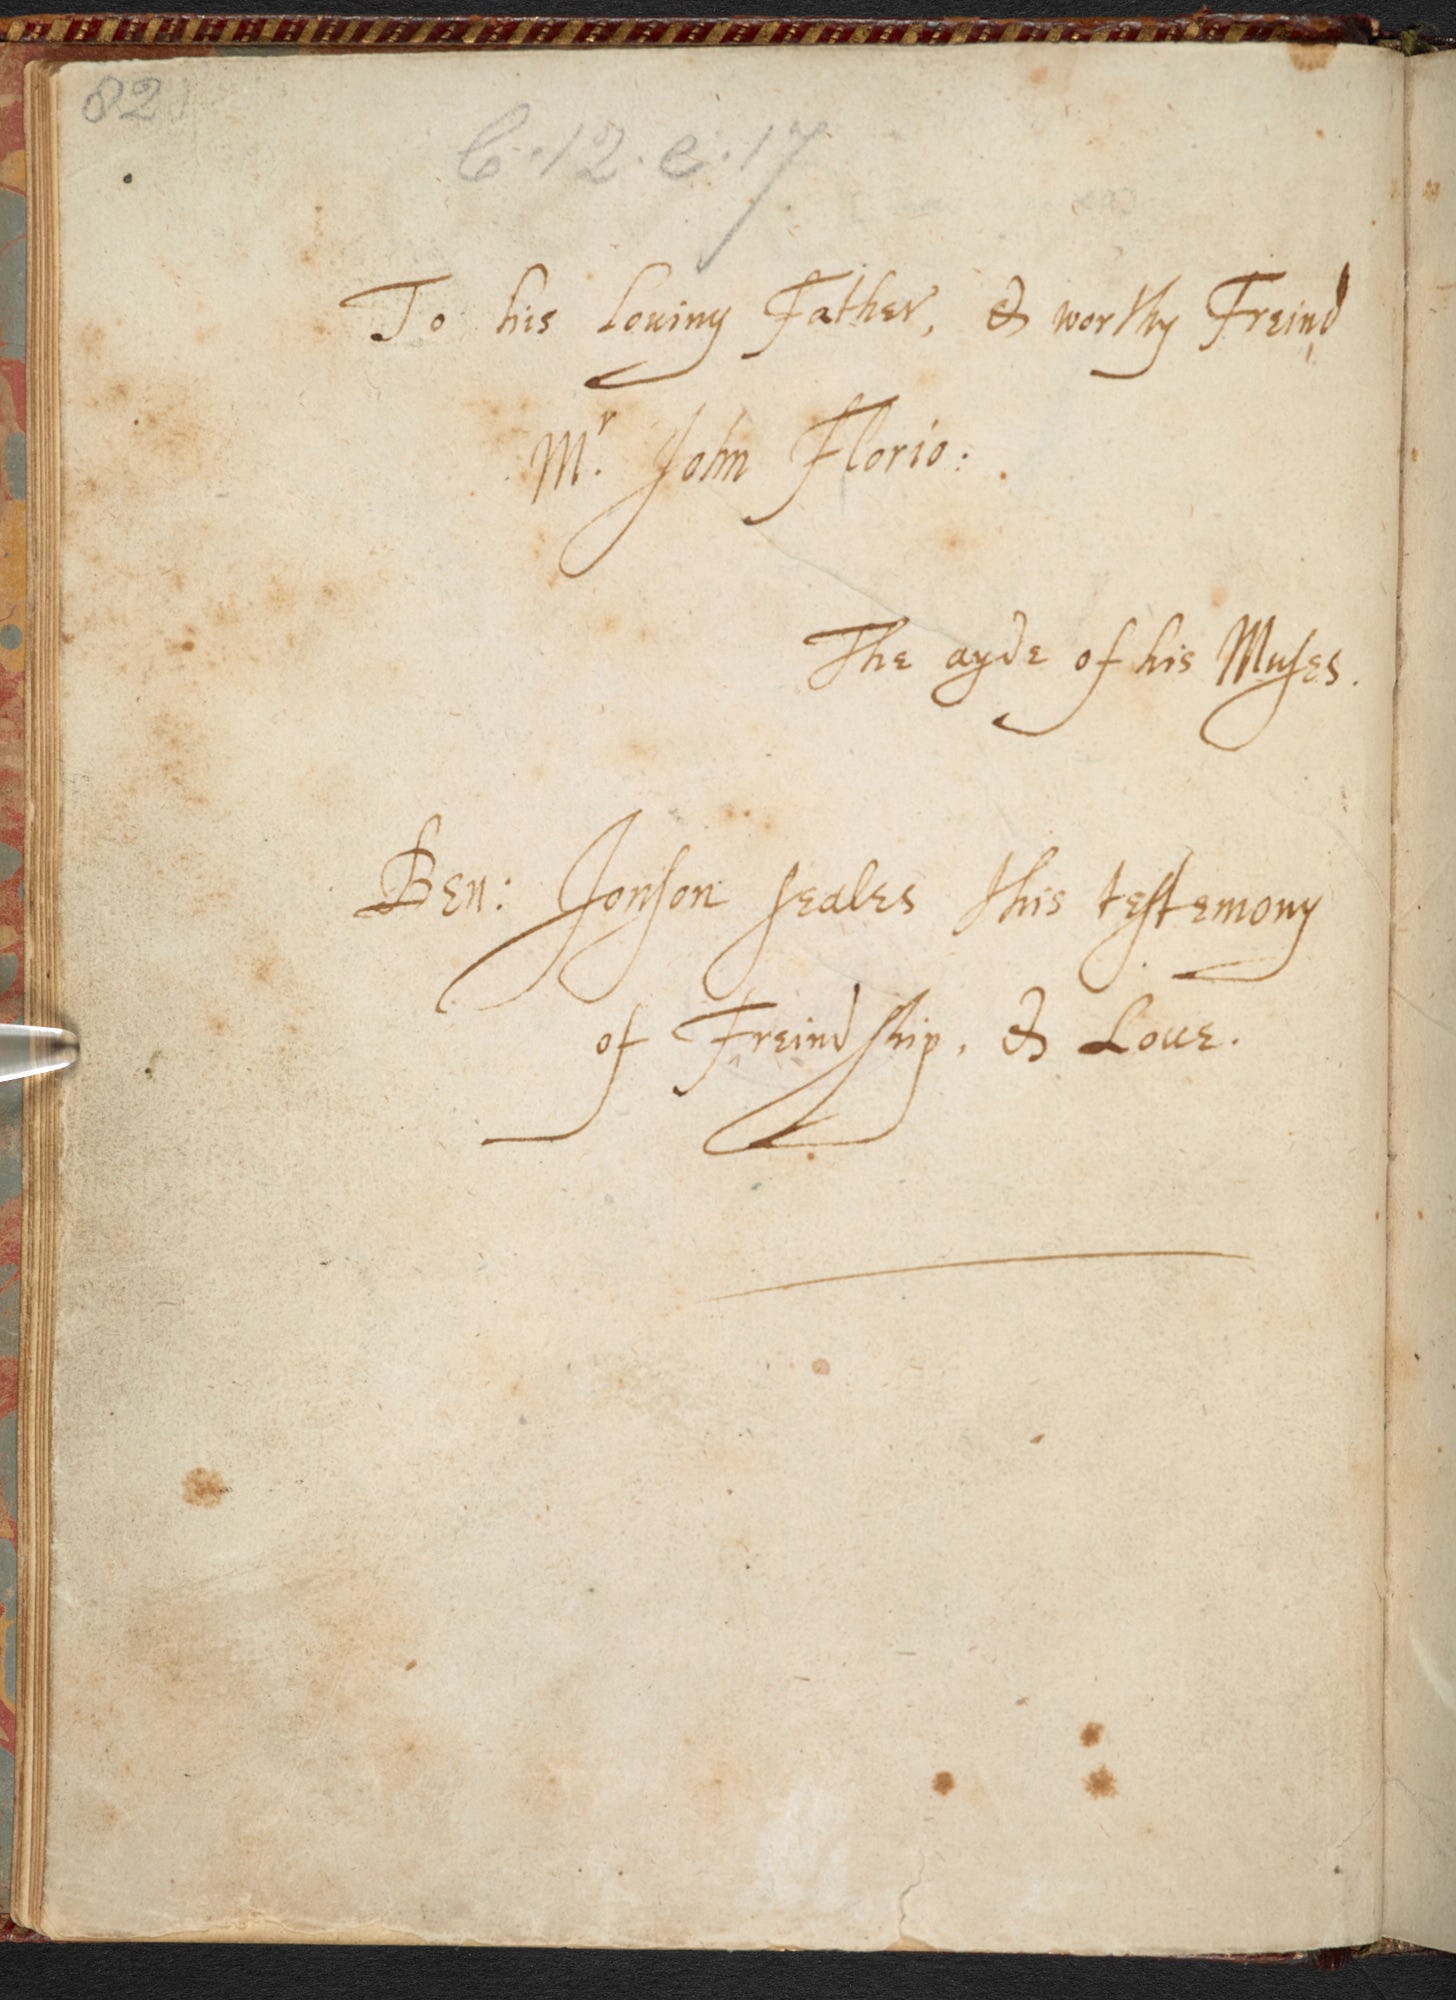 82
C.12.e.17
To his louing Father, & worthy Freind
Mr. John Florio:
The ayde of his Muses.
Ben: Jonson seales this testemony
of Freindship, & Loue.